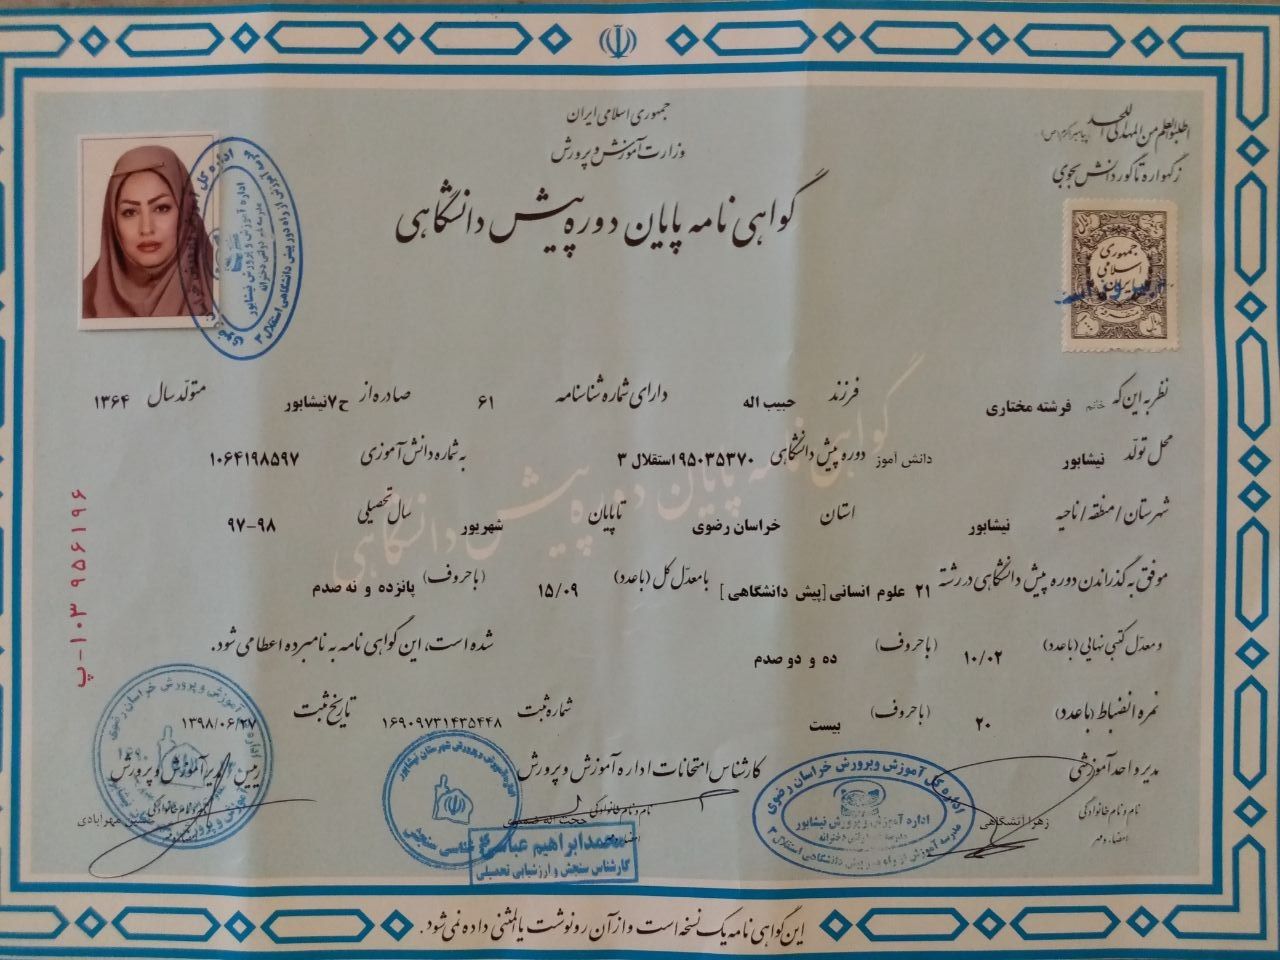 جمهوری اسلامی ایران
وزارت آموزش و پرورش
اطلبوا العلم من المهد الی اللحد
پیامبر اکرم (ص)
ز گهواره تا گور دانش بجوی
گواهی نامه پایان دوره پیش دانشگاهی
جمهوری اسلامی ایران
نظر به این که خانم فرشته مختاری فرزند حبیب اله دارای شماره شناسنامه ۶۱ صادره از ح۷نیشابور متولد سال ۱۳۶۴
محل تولد نیشابور دانش آموز دوره پیش دانشگاهی ۹۵۰۳۵۳۷۰ استقلال ۳ به شماره دانش آموزی ۱۰۶۴۱۹۸۵۹۷
شهرستان / منطقه / ناحیه نیشابور استان خراسان رضوی تا پایان شهریور سال تحصیلی ۹۷-۹۸
موفق به گذراندن دوره پیش دانشگاهی در رشته ۲۱ علوم انسانی [پیش دانشگاهی] با معدل کل (با عدد) ۱۵/۰۹ (با حروف) پانزده و نه صدم
و معدل کتبی نهایی (با عدد) ۱۰/۰۲ (با حروف) ده و دو صدم شده است، این گواهی نامه به نامبرده اعطا می شود.
نمره انضباط (با عدد) ۲۰ (با حروف) بیست شماره ثبت ۱۶۹۰۹۷۳۱۴۳۵۴۴۸ تاریخ ثبت ۱۳۹۸/۰۶/۲۷
پ-۱۰۳ ۹۵۶۱۹۶
مدیر واحد آموزشی
نام و نام خانوادگی زهرا آتشگاهی
امضاء و مهر
کارشناس امتحانات اداره آموزش و پرورش
نام و نام خانوادگی حجت اله
محمدابراهیم عباسی
کارشناس سنجش و ارزشیابی تحصیلی
آموزش و پرورش
مهرآبادی
اداره کل آموزش و پرورش خراسان رضوی
اداره آموزش و پرورش نیشابور
مدرسه آموزش از راه دور پیش دانشگاهی استقلال ۳
این گواهی نامه یک نسخه است و از آن رونوشت یا المثنی داده نمی شود.